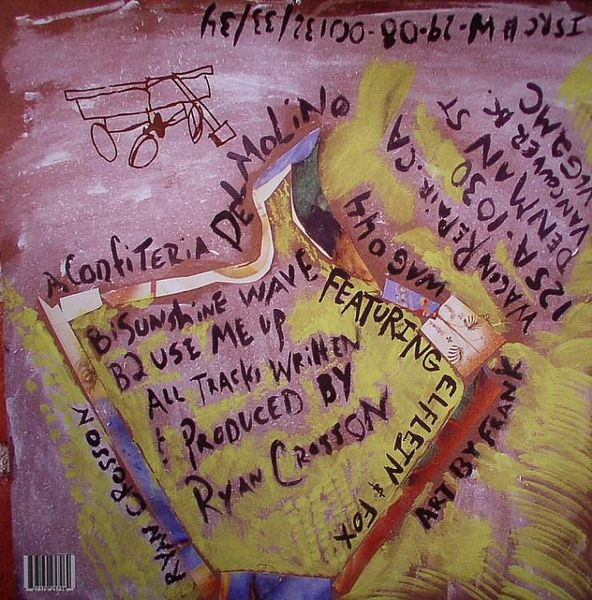 ISRC # W-29-08-00132/33/34
A. Confiteria Del Molino
B1 Sunshine Wave
B2 USE ME UP
ALL TRACKS WRITTEN
& PRODUCED BY
RYAN CROSSON
RYAN CROSSON
FEATURING ELFLEIN & FOX
ART BY FRANK
WAG044
WAGON REPAIR.CA
125A-1030
DENMAN ST
VANCOUVER B.C.
V6G2MC